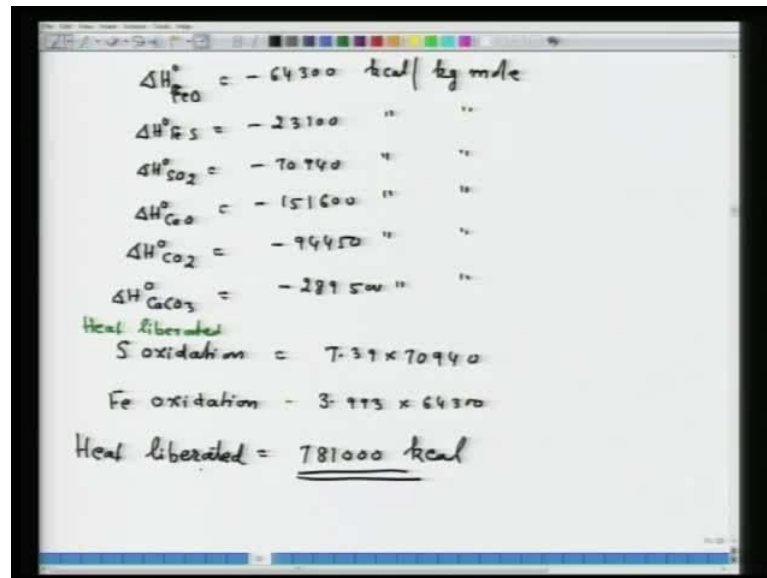 ΔH°FeO = - 64300 kcal / kg mole
ΔH°FeS = - 23100 " "
ΔH°SO2 = - 70940 " "
ΔH°CaO = - 151600 " "
ΔH°CO2 = - 94450 " "
ΔH°CaCO3 = - 289500 " "
Heat liberated
S oxidation = 7.39 x 70940
Fe oxidation - 3.993 x 64300
Heat liberated = 781000 kcal